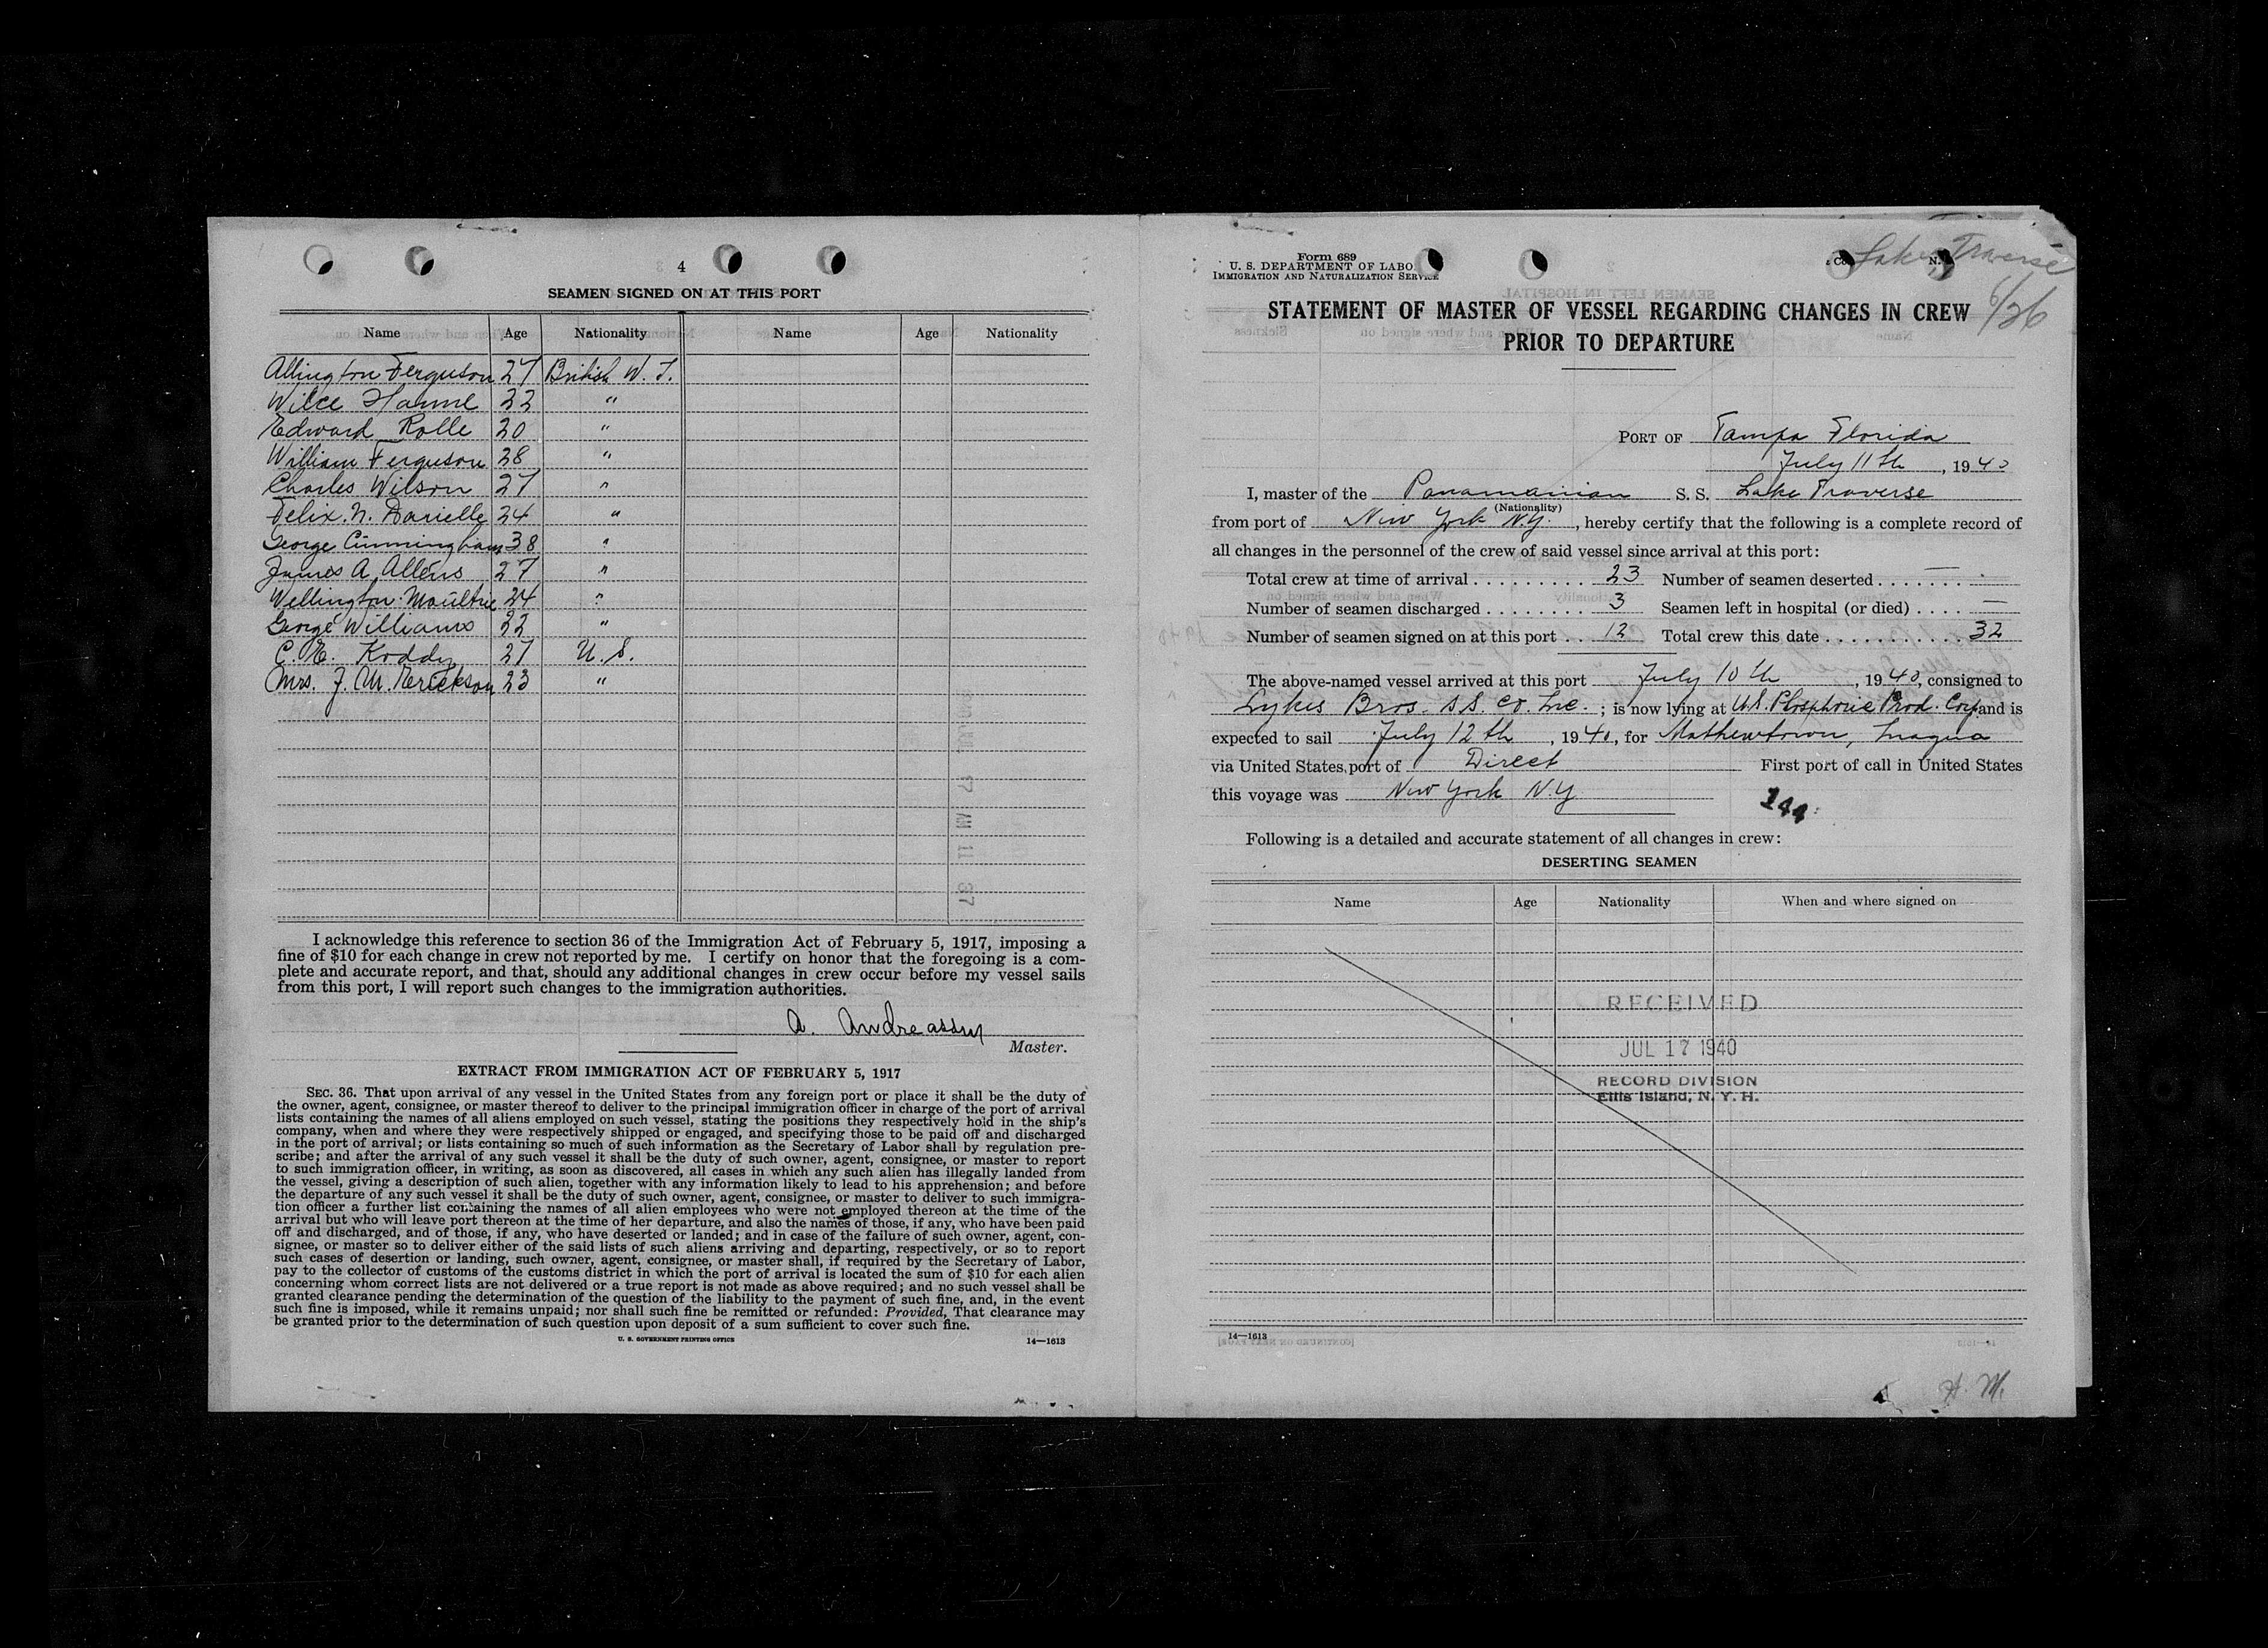 4
SEAMEN SIGNED ON AT THIS PORT
Name Age Nationality Name Age Nationality
Allington Ferguson 27 British W. I.
Wilce 22 "
Edward Rolle 20 "
William Ferguson 28 "
Charles Wilson 27 "
Felix. N. Darielle 24 "
George Cunningham 38 "
James A. Allens 27 "
Wellington Moultrie 24 "
George Williams 22 "
C. E. Koddy 27 U. S.
Mrs. J. M. Erickson 23 "
I acknowledge this reference to section 36 of the Immigration Act of February 5, 1917, imposing a
fine of $10 for each change in crew not reported by me. I certify on honor that the foregoing is a com-
plete and accurate report, and that, should any additional changes in crew occur before my vessel sails
from this port, I will report such changes to the immigration authorities.
A. Andreassen
Master.
EXTRACT FROM IMMIGRATION ACT OF FEBRUARY 5, 1917
SEC. 36. That upon arrival of any vessel in the United States from any foreign port or place it shall be the duty of
the owner, agent, consignee, or master thereof to deliver to the principal immigration officer in charge of the port of arrival
lists containing the names of all aliens employed on such vessel, stating the positions they respectively hold in the ship's
company, when and where they were respectively shipped or engaged, and specifying those to be paid off and discharged
in the port of arrival; or lists containing so much of such information as the Secretary of Labor shall by regulation pre-
scribe; and after the arrival of any such vessel it shall be the duty of such owner, agent, consignee, or master to report
to such immigration officer, in writing, as soon as discovered, all cases in which any such alien has illegally landed from
the vessel, giving a description of such alien, together with any information likely to lead to his apprehension; and before
the departure of any such vessel it shall be the duty of such owner, agent, consignee, or master to deliver to such immigra-
tion officer a further list containing the names of all alien employees who were not employed thereon at the time of the
arrival but who will leave port thereon at the time of her departure, and also the names of those, if any, who have been paid
off and discharged, and of those, if any, who have deserted or landed; and in case of the failure of such owner, agent, con-
signee, or master so to deliver either of the said lists of such aliens arriving and departing, respectively, or so to report
such cases of desertion or landing, such owner, agent, consignee, or master shall, if required by the Secretary of Labor,
pay to the collector of customs of the customs district in which the port of arrival is located the sum of $10 for each alien
concerning whom correct lists are not delivered or a true report is not made as above required; and no such vessel shall be
granted clearance pending the determination of the question of the liability to the payment of such fine, and, in the event
such fine is imposed, while it remains unpaid; nor shall such fine be remitted or refunded: Provided, That clearance may
be granted prior to the determination of such question upon deposit of a sum sufficient to cover such fine.
U. S. GOVERNMENT PRINTING OFFICE 14—1613
Form 689
U. S. DEPARTMENT OF LABO
IMMIGRATION AND NATURALIZATION SERVICE
Lake Traverse
6/26
STATEMENT OF MASTER OF VESSEL REGARDING CHANGES IN CREW
PRIOR TO DEPARTURE
PORT OF Tampa Florida
July 11th, 1940
I, master of the Panamanian S. S. Lake Traverse
(Nationality)
from port of New York N.Y., hereby certify that the following is a complete record of
all changes in the personnel of the crew of said vessel since arrival at this port:
Total crew at time of arrival . . . . . . . . . 23 Number of seamen deserted . . . . . . . . —
Number of seamen discharged . . . . . . . . 3 Seamen left in hospital (or died) . . . . —
Number of seamen signed on at this port . . 12 Total crew this date . . . . . . . . . . . 32
The above-named vessel arrived at this port July 10th, 1940, consigned to
Lykes Bros. S.S. Co. Inc. ; is now lying at U.S. Phosphoric Prod. Corp and is
expected to sail July 12th, 1940, for Mathewtown, Inagua
via United States port of Direct First port of call in United States
this voyage was New York N.Y
144
Following is a detailed and accurate statement of all changes in crew:
DESERTING SEAMEN
Name Age Nationality When and where signed on
RECEIVED
JUL 17 1940
RECORD DIVISION
Ellis Island, N. Y. H.
14—1613
H. M.